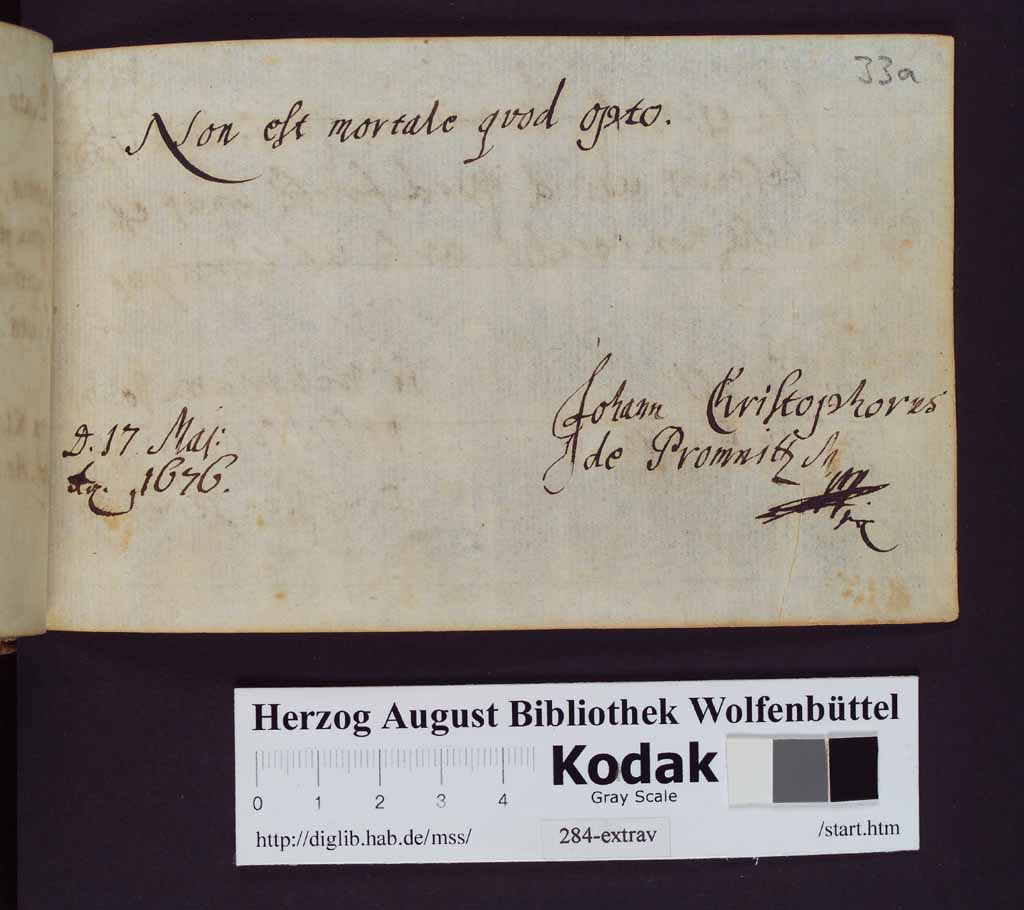 33a
Non est mortale quod opto.
Johann Christophorus
de Promnitz
D. 17 Maj:
1676.
Herzog August Bibliothek Wolfenbüttel
Kodak
Gray Scale
0 1 2 3 4
http://diglib.hab.de/mss/
284-extrav
/start.htm